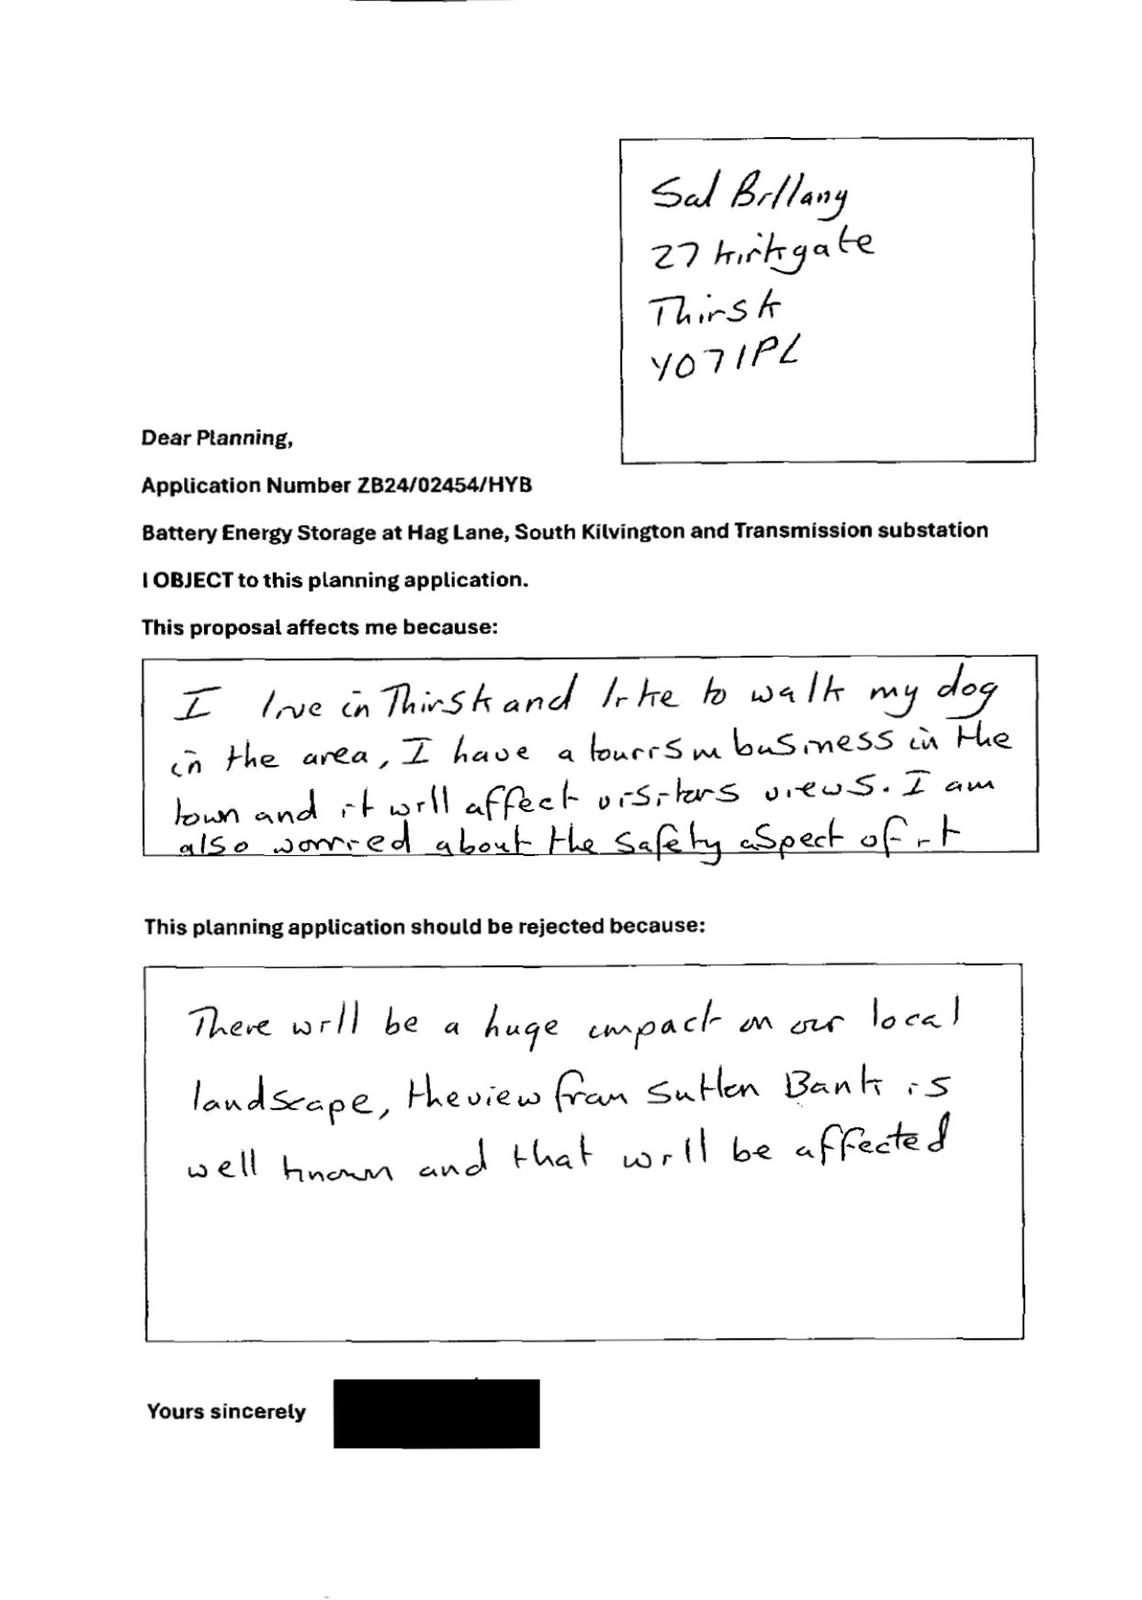 Sal Billany
27 Kirkgate
Thirsk
YO7 1PL
Dear Planning,
Application Number ZB24/02454/HYB
Battery Energy Storage at Hag Lane, South Kilvington and Transmission substation
I OBJECT to this planning application.
This proposal affects me because:
I live in Thirsk and like to walk my dog
in the area, I have a tourism business in the
town and it will affect visitors views. I am
also worried about the safety aspect of it
This planning application should be rejected because:
There will be a huge impact on our local
landscape, the view from Sutton Bank is
well known and that will be affected
Yours sincerely